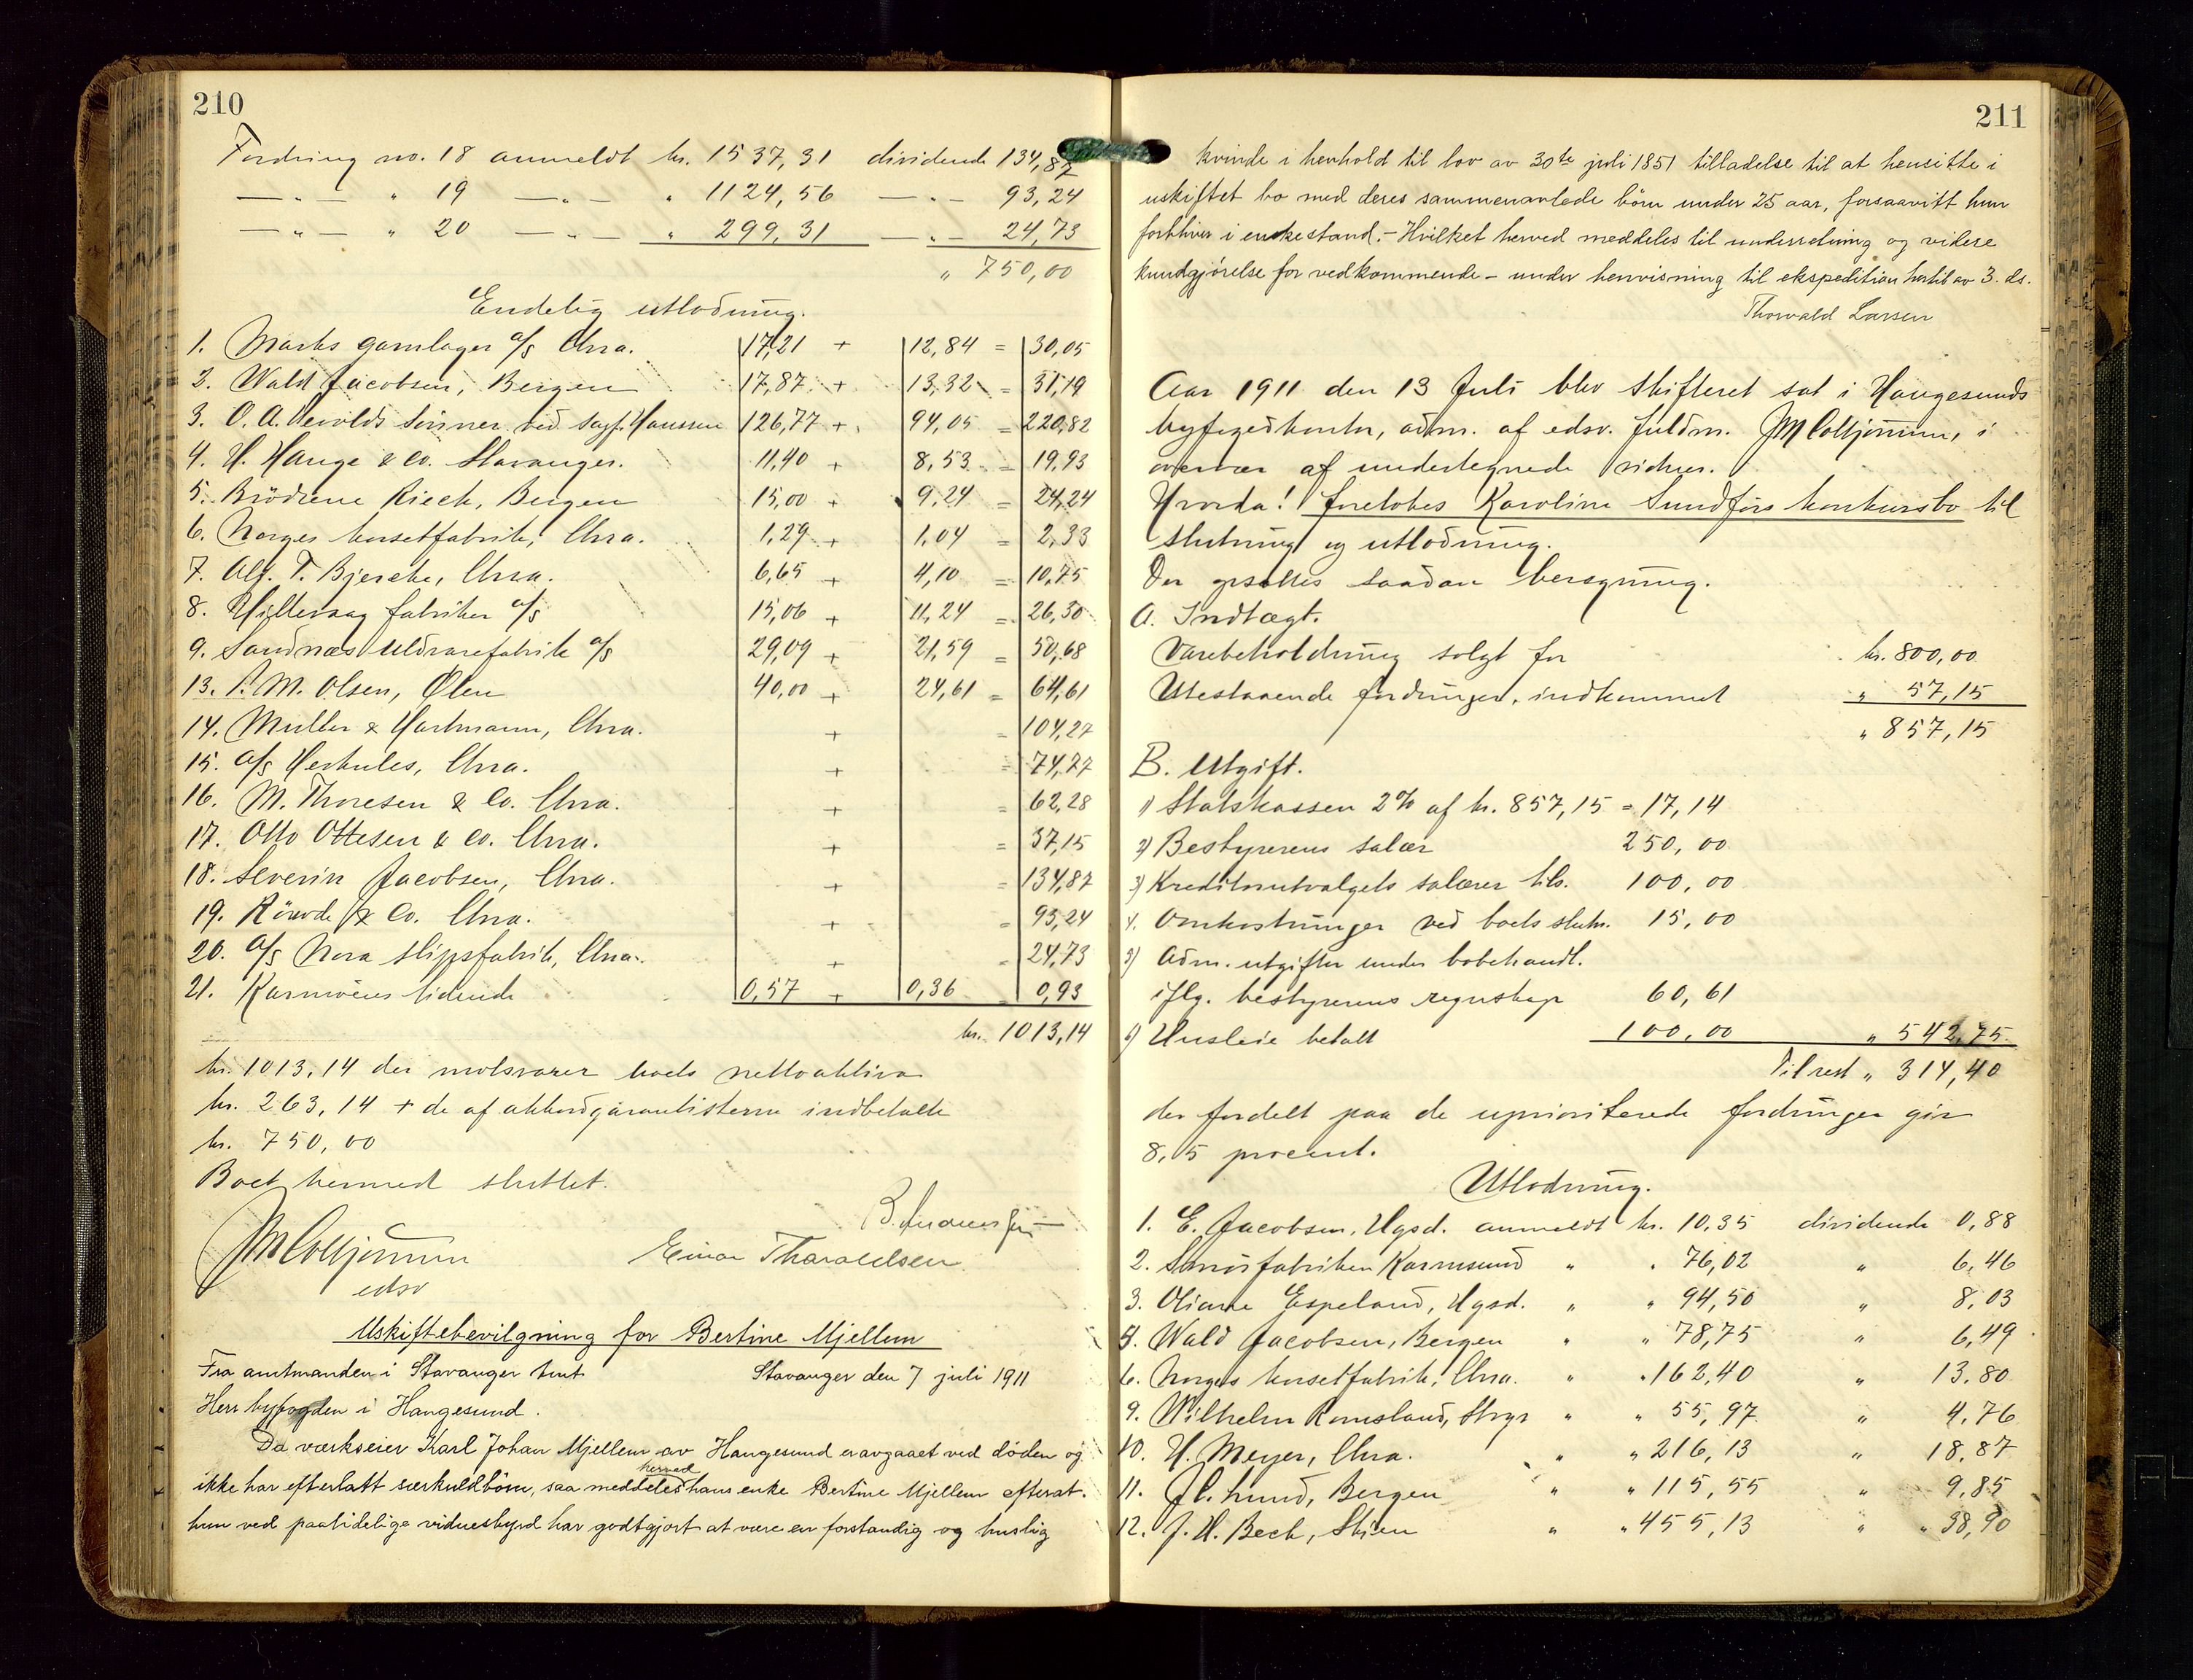 210
Fordring no. 18 anmeldt kr. 1537,31 dividende 134,87
— „ — „ 19 — „ — „ 1124,56 — „ — 93,24
— „ — „ 20 — „ — „ 299,31 — „ — 24,73
„ 750,00
Endelig utlodning.
1. Marks garnlager a/s Chra. 17,21 + 12,84 = 30,05
2. Wald Jacobsen, Bergen 17,87 + 13,32 = 31,19
3. O. A. Devolds sønner ved sagf. Hanssen 126,77 + 94,05 = 220,82
4. H. Hauge & co. Stavanger. 11,40 + 8,53 = 19,93
5. Brödrene Rieck, Bergen 15,00 + 9,24 = 24,24
6. Norges korsetfabrik, Chra. 1,29 + 1,04 = 2,33
7. Alf. T. Bjercke, Chra. 6,65 + 4,10 = 10,75
8. Hillevaag fabriker a/s 15,06 + 11,24 = 26,30
9. Sandnæs uldvarefabrik a/s 29,09 + 21,59 = 50,68
13. P. M. Olsen, Ølen 40,00 + 24,61 = 64,61
14. Muller & Hartmann, Chra. + = 104,27
15. a/s Herkules, Chra. + = 74,77
16. M. Thoresen & Co. Chra. + = 62,28
17. Otto Ottesen & co. Chra. + = 37,15
18. Severin Jacobsen, Chra. + = 134,87
19. Rövde & Co. Chra. + = 93,24
20. a/s Nora slipsfabrik, Chra. + = 24,73
21. Karmöens tidende 0,57 + 0,36 0,93
kr. 1013,14
kr. 1013,14 der motsvarer boets nettoaktiva
kr. 263,14 + de af akkordgarantisterne indbetalte
kr. 750,00
Boet hermed sluttet.
B. Andersen jr.
JM Coltjørnsen Einar Tharaldsen.
edsv
Uskiftebevilgning for Bertine Mjellem
Fra amtmanden i Stavanger amt Stavanger den 7 juli 1911
Herr byfogden i Haugesund.
Da værkseier Karl Johan Mjellem av Haugesund er avgaaet ved døden og
ikke har efterlatt særkuldbörn, saa meddeles herved hans enke Bertine Mjellem efterat
hun ved paalidelige vidnesbyrd har godtgjort at være en forstandig og huslig
211
kvinde i henhold til lov av 30te juli 1851 tilladelse til at hensitte i
uskiftet bo med deres sammenavlede börn under 25 aar, forsaavitt hun
forbliver i enkestand. – Hvilket herved meddeles til underretning og videre
kundgjörelse for vedkommende – under henvisning til ekspedition hertil av 3. ds.
Thorvald Larsen
Aar 1911 den 13 Juli blev skifteret sat i Haugesunds
byfogedkontor, adm. af edsv. fuldm. JM Coltjørnsen, i
overvær af undertegnede vidner.
Hvorda! foretokes Karoline Sundförs konkursbo til
slutning og utlodning.
Der opsattes saadan beregning.
A. Indtægt.
Varebeholdning solgt for kr. 800,00
Utestaaende fordringer, indkommet „ 57,15
„ 857,15
B. Utgift.
1) Statskassen 2% af kr. 857,15 = 17,14
2) Bestyrerens salær 250,00
3) Kreditorutvalgets salærer tils. 100,00
4. Omkostninger ved boets slutn. 15,00
5) Adm. utgifter under bobehandl.
iflg. bestyrerens regnskap 60,61
6) Husleie betalt 100,00 „ 542,75
Til rest „ 314,40
der fordelt paa de uprioriterede fordringer gir
8,5 procent.
Utlodning.
1. E. Jacobsen, Hgsd. anmeldt kr. 10,35 dividende 0,88
2. Smörfabriken Karmsund „ „ 76,02 „ 6,46
3. Oliane Espeland, Hgsd. „ „ 94,50 „ 8,03
4. Wald Jacobsen, Bergen „ „ 78,75 „ 6,49
6. Norges korsetfabrik, Chra. „ „ 162,40 „ 13,80
9. Wilhelm Romsland, Stvgr „ „ 55,97 „ 4,76
10. H. Meyer, Chra. „ „ 216,13 „ 18,87
11. J. C. Lund, Bergen „ „ 115,55 „ 9,85
12. J. H. Beck, Skien „ „ 455,13 „ „ 38,90